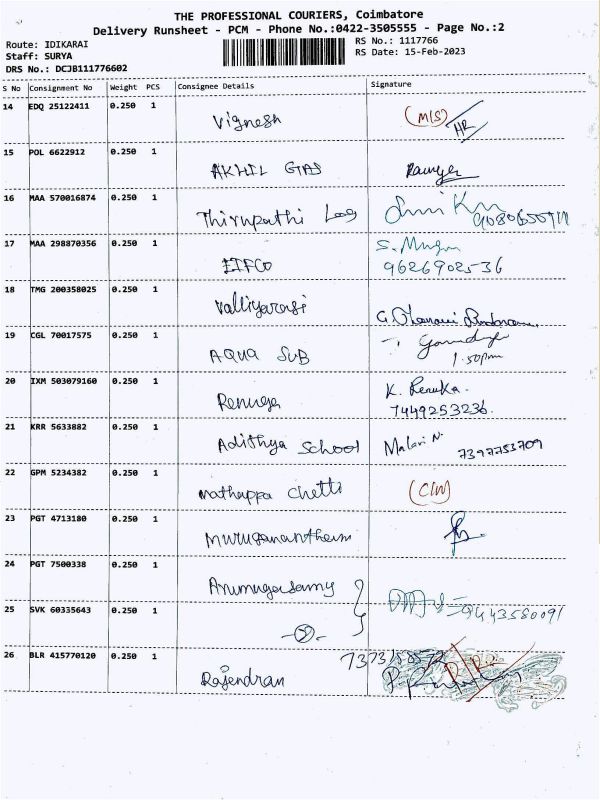 THE PROFESSIONAL COURIERS, Coimbatore
Delivery Runsheet - PCM - Phone No.:0422-3505555 - Page No.:2
Route: IDIKARAI
RS No.: 1117766
Staff: SURYA
RS Date: 15-Feb-2023
DRS No.: DCJB111776602
S No Consignment No Weight PCS Consignee Details Signature
14 EDQ 25122411 0.250 1 Vignesh (M/S) HR
15 POL 6622912 0.250 1 AKHIL GAS
16 MAA 570016874 0.250 1 Thirupathi Log
17 MAA 298870356 0.250 1 EIFCO S. Mugn
9626902536
18 TMG 200358025 0.250 1 Valliyarasi
19 CGL 70017575 0.250 1 AQUA SUB
1.50pm
20 IXM 503079160 0.250 1 Renuga K. Renuka.
7449253236.
21 KRR 5633882 0.250 1 Adithya School Malari N. 7397753709
22 GPM 5234382 0.250 1 mathappa chetti (CIN)
23 PGT 4713180 0.250 1 Muruganantham
24 PGT 7500338 0.250 1 Arumugasamy
25 SVK 60335643 0.250 1 -②- 9443580091
26 BLR 415770120 0.250 1 Rajendran